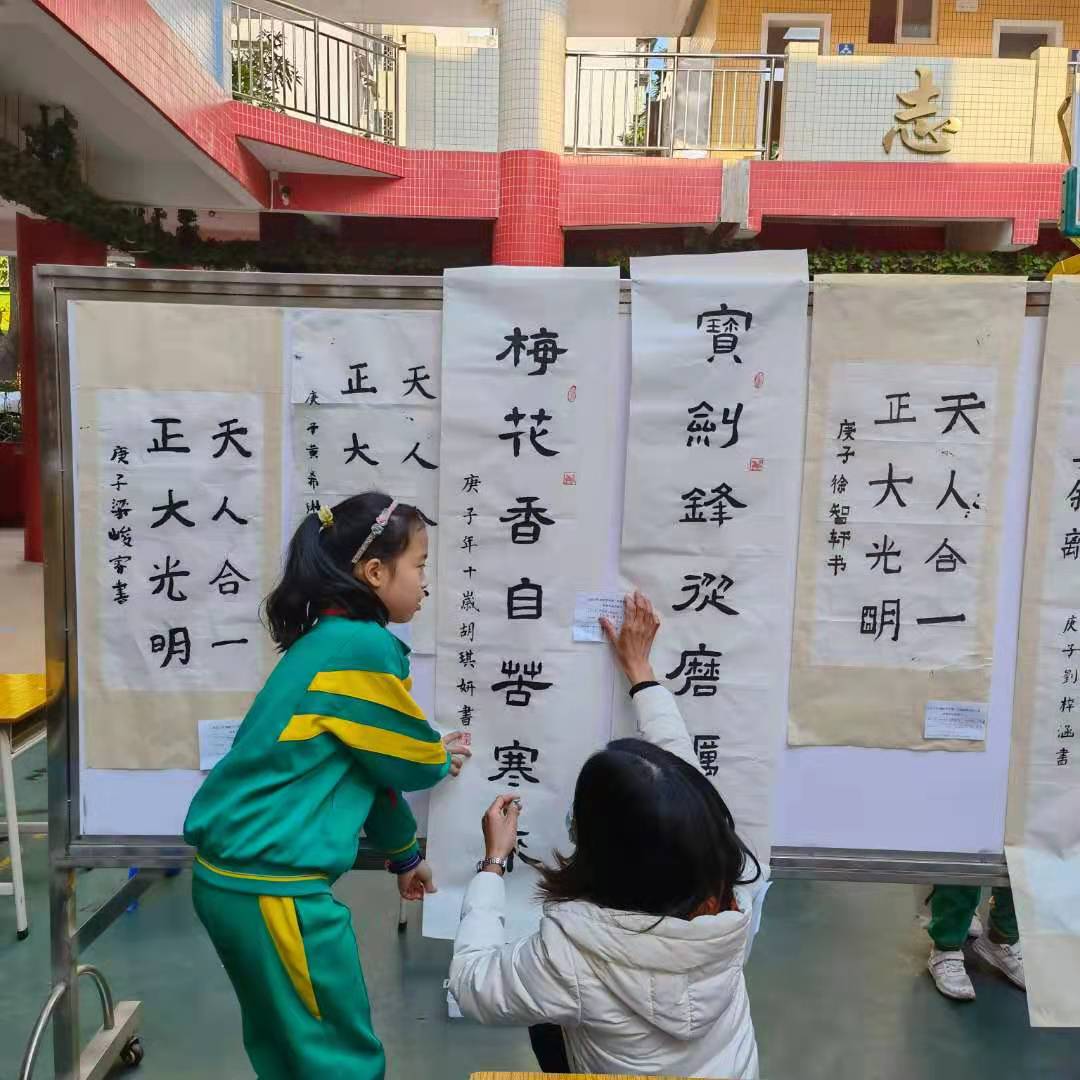 志
天人合一
正大光明
庚子梁峻家書
天人
正大
庚子黄希
寶劍鋒從磨厲
梅花香自苦寒
庚子年十歲胡琪妍書
天人合一
正大光明
庚子徐智轩书
離
庚子劉梓涵書